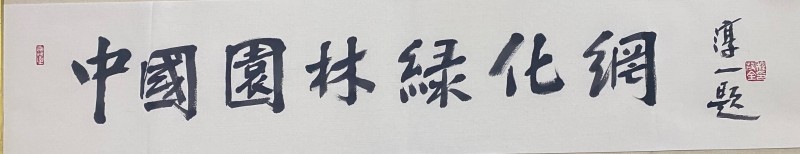 中國園林綠化網
淳一題